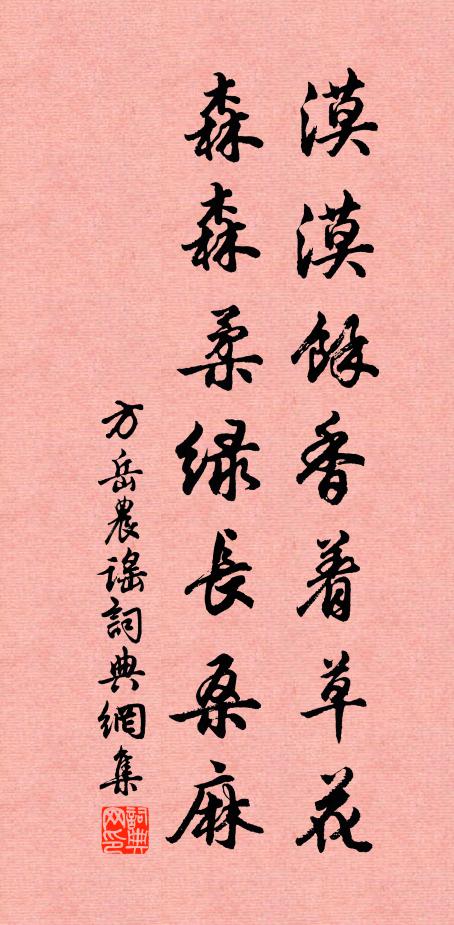 漠漠餘香着草花
森森柔緑長桑麻
方岳農謠詞典網集
詞典网印